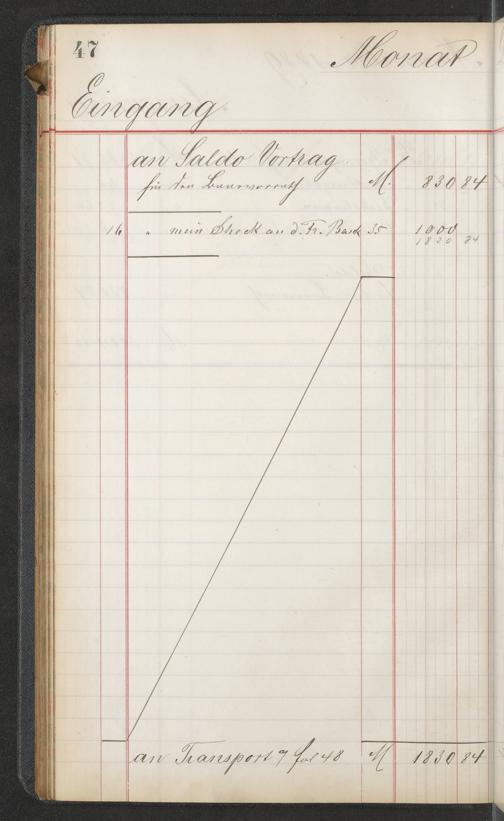 47
Monat
Eingang
an Saldo Vortrag
für den Baarvorrath M. 830 84
16 " mein Check an d. Fr. Bank 35 1000
1830 84
an Transport a/ fol 48 M 1830 84